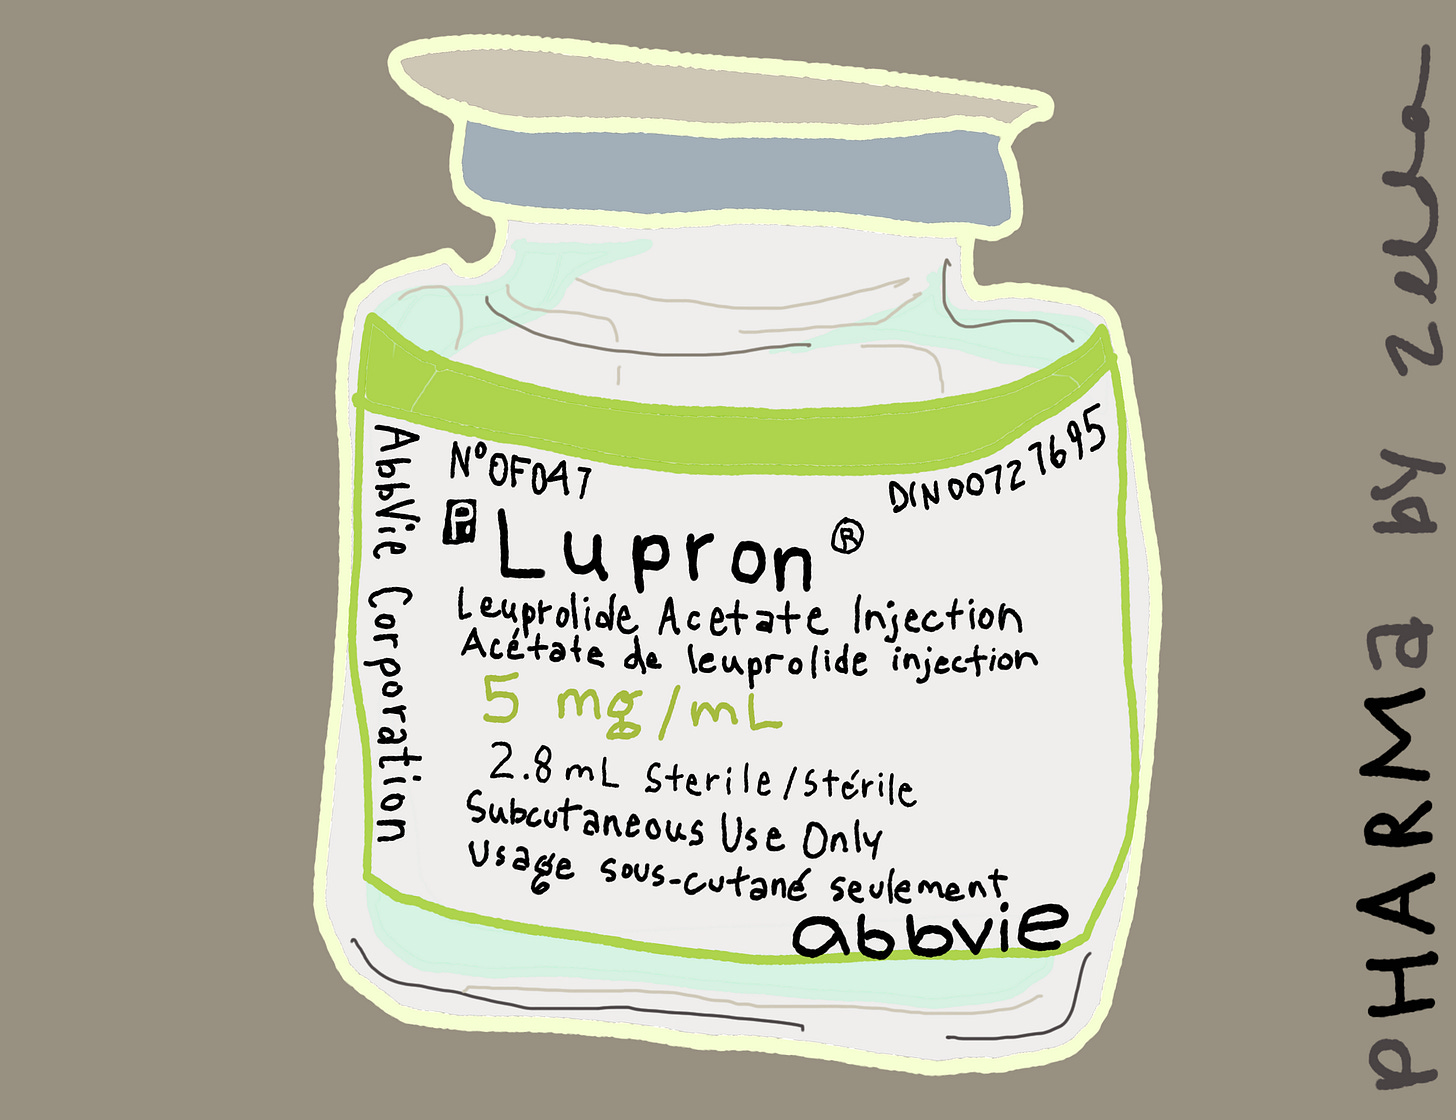 N° 0F047
DIN 00727695
P Lupron ®
Leuprolide Acetate Injection
Acétate de leuprolide injection
5 mg/mL
2.8 mL Sterile/Stérile
Subcutaneous Use Only
Usage sous-cutané seulement
abbvie
AbbVie Corporation
PHARMa by zelda